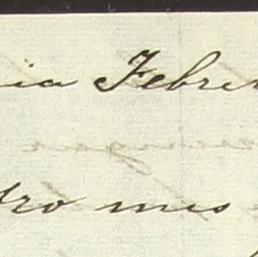 ia Febre
tro mes